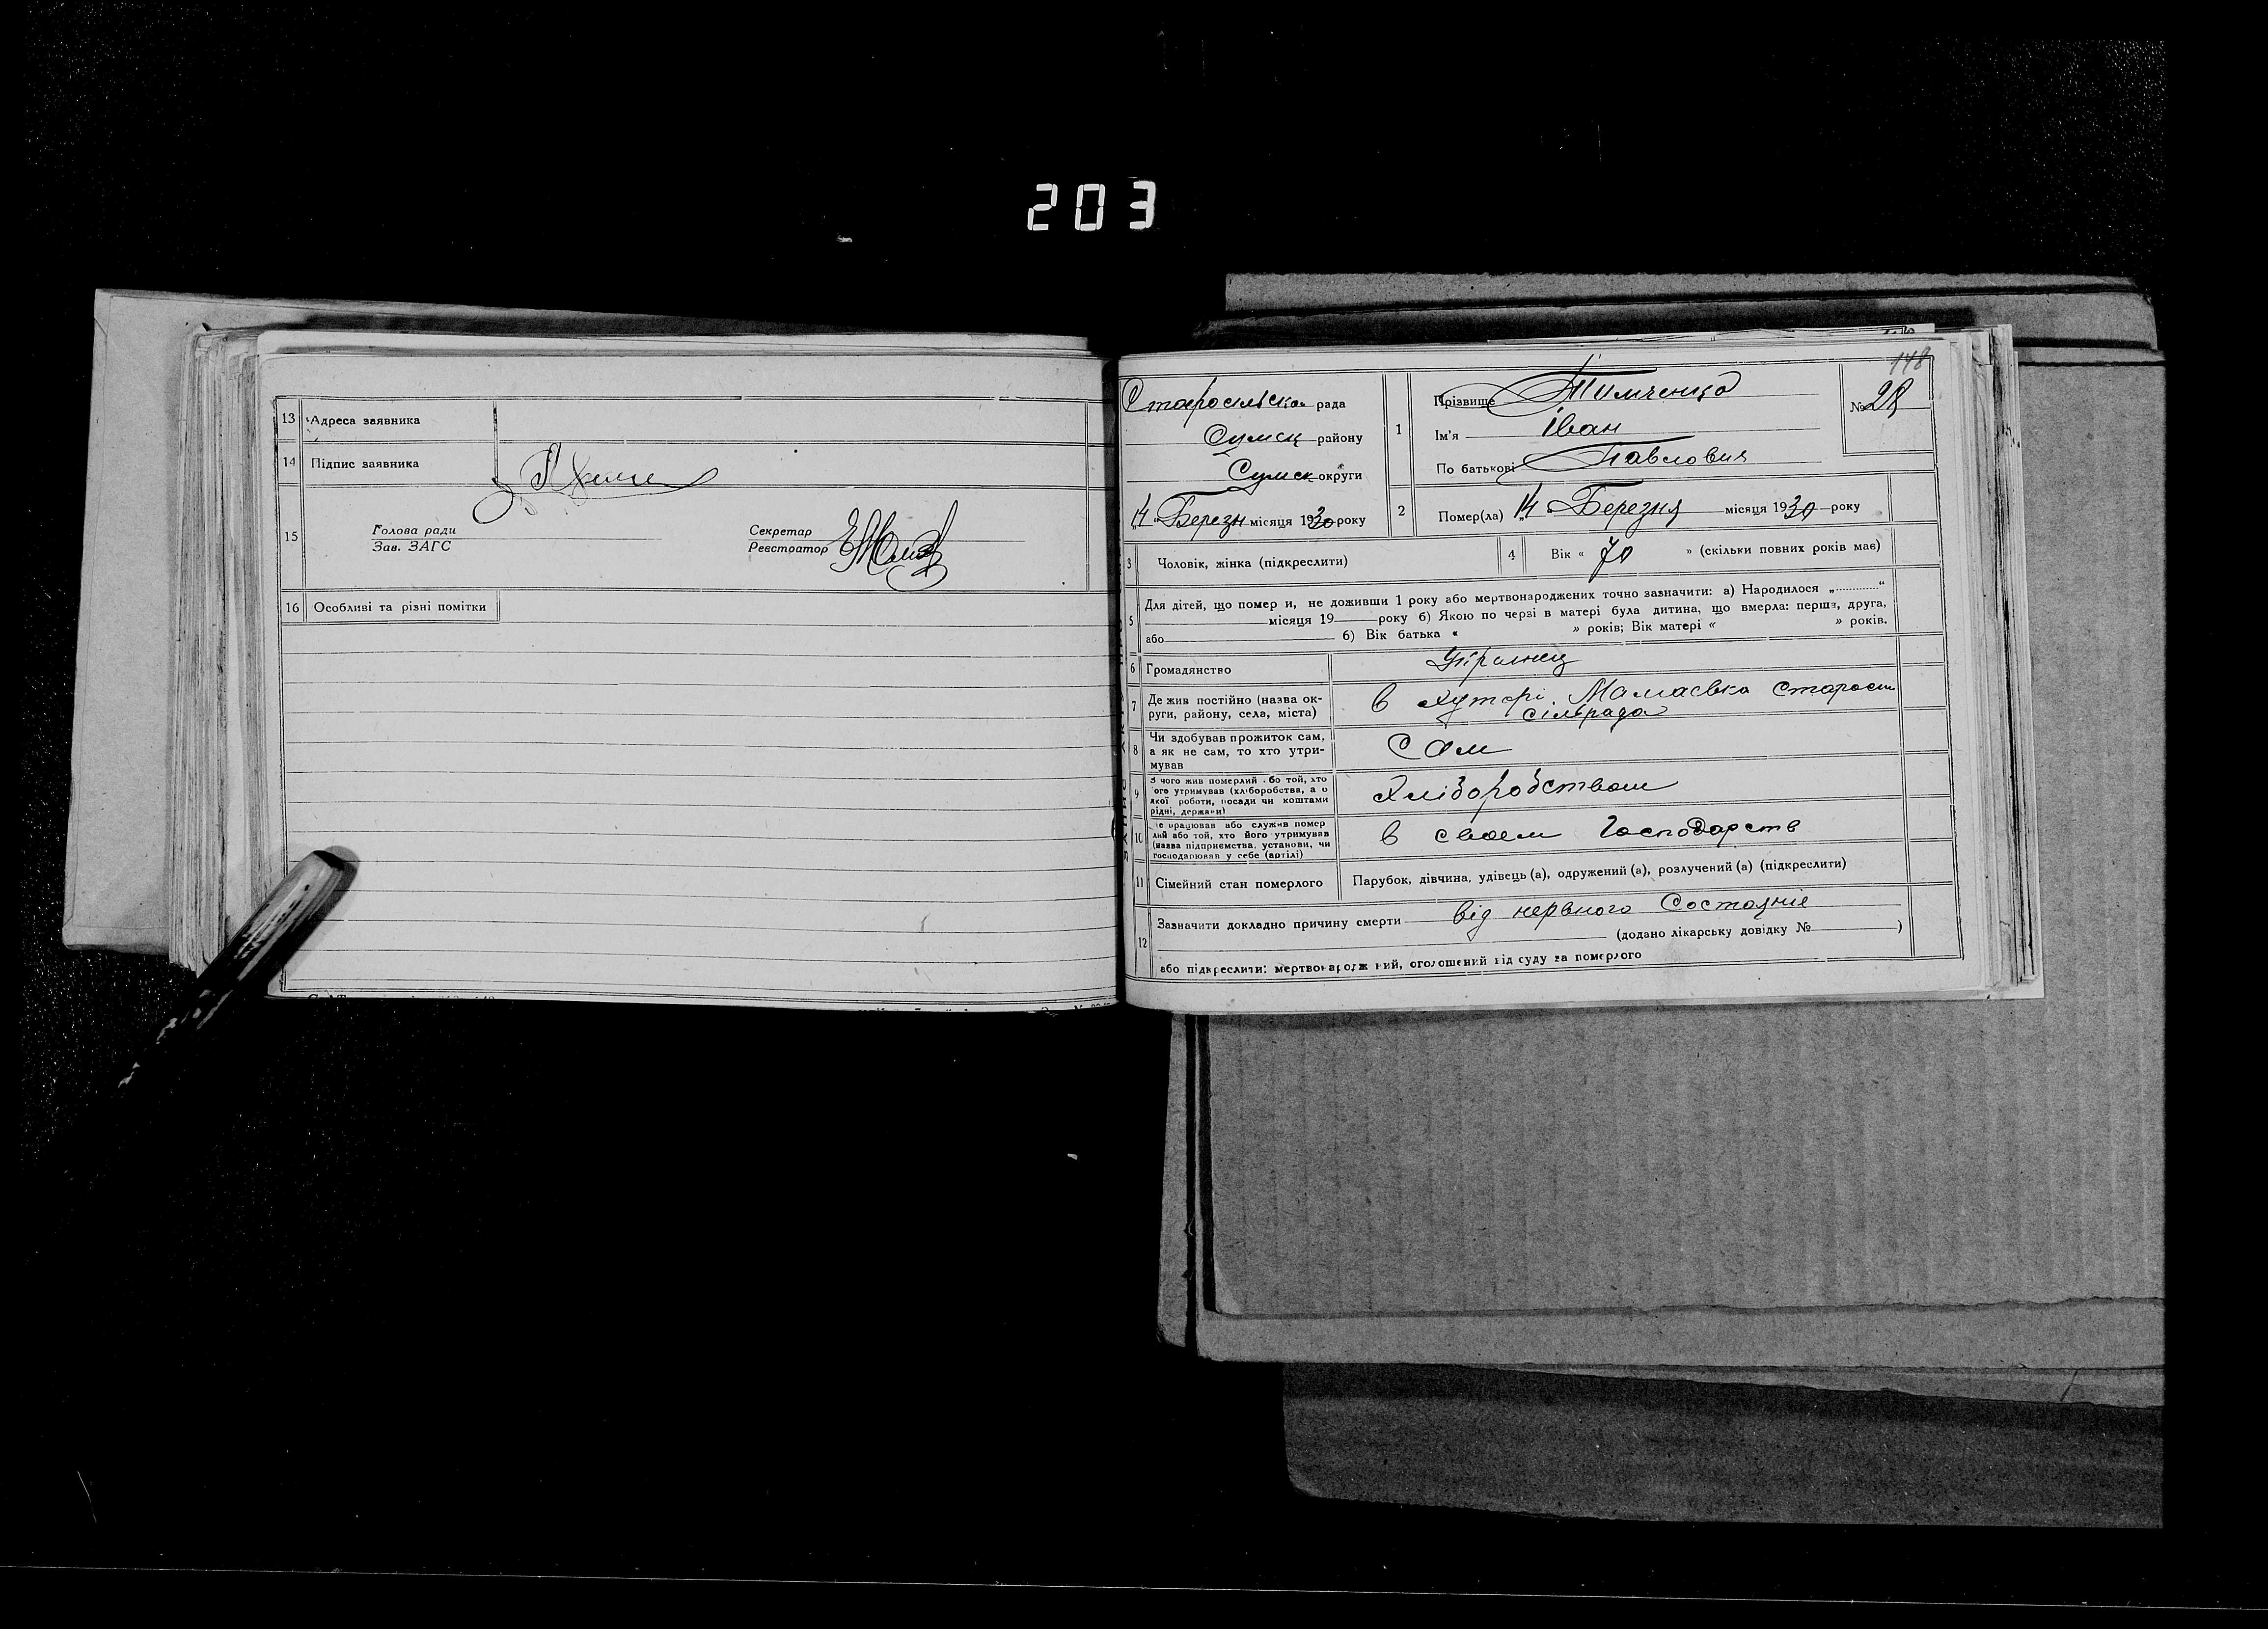 203
13 Адреса заявника
14 Підпис заявника
15 Голова ради
Зав. ЗАГС
Секретар
Реєстратор
16 Особливі та різні помітки
148
Старосільська рада
Сумск району
Сумск округи
"14" Березн місяця 1930 року
1 Прізвище Тимченко
Ім'я Іван
По батькові Павлович
№ 28
2 Помер(ла) "14" Березня місяця 1930 року
3 Чоловік, жінка (підкреслити)
4 Вік « 70 » (скільки повних років має)
5 Для дітей, що померли, не доживши 1 року або мертвонароджених точно зазначити: а) Народилося „............“
місяця 19 року б) Якою по черзі в матері була дитина, що вмерла: перша, друга,
або б) Вік батька « » років; Вік матері « » років.
6 Громадянство Українец
7 Де жив постійно (назва ок-
руги, району, села, міста)
в хуторі Мамаєвка Старосіл
сільрада
8 Чи здобував прожиток сам,
а як не сам, то хто утри-
мував
Сам
9 З чого жив померлий або той, хто
його утримував (хліборобства, а о
якої роботи, посади чи коштами
рідні, держави)
Хліборобством
10 Де працював або служив помер
лий або той, хто його утримував
(назва підприємства, установи, чи
господарював у себе (артілі)
в своем Господарств
11 Сімейний стан померлого
Парубок, дівчина, удівець (а), одружений (а), розлучений (а) (підкреслити)
12 Зазначити докладно причину смерти від нервного Состояние
(додано лікарську довідку № )
або підкреслити: мертвонароджений, оголошений від суду за померлого